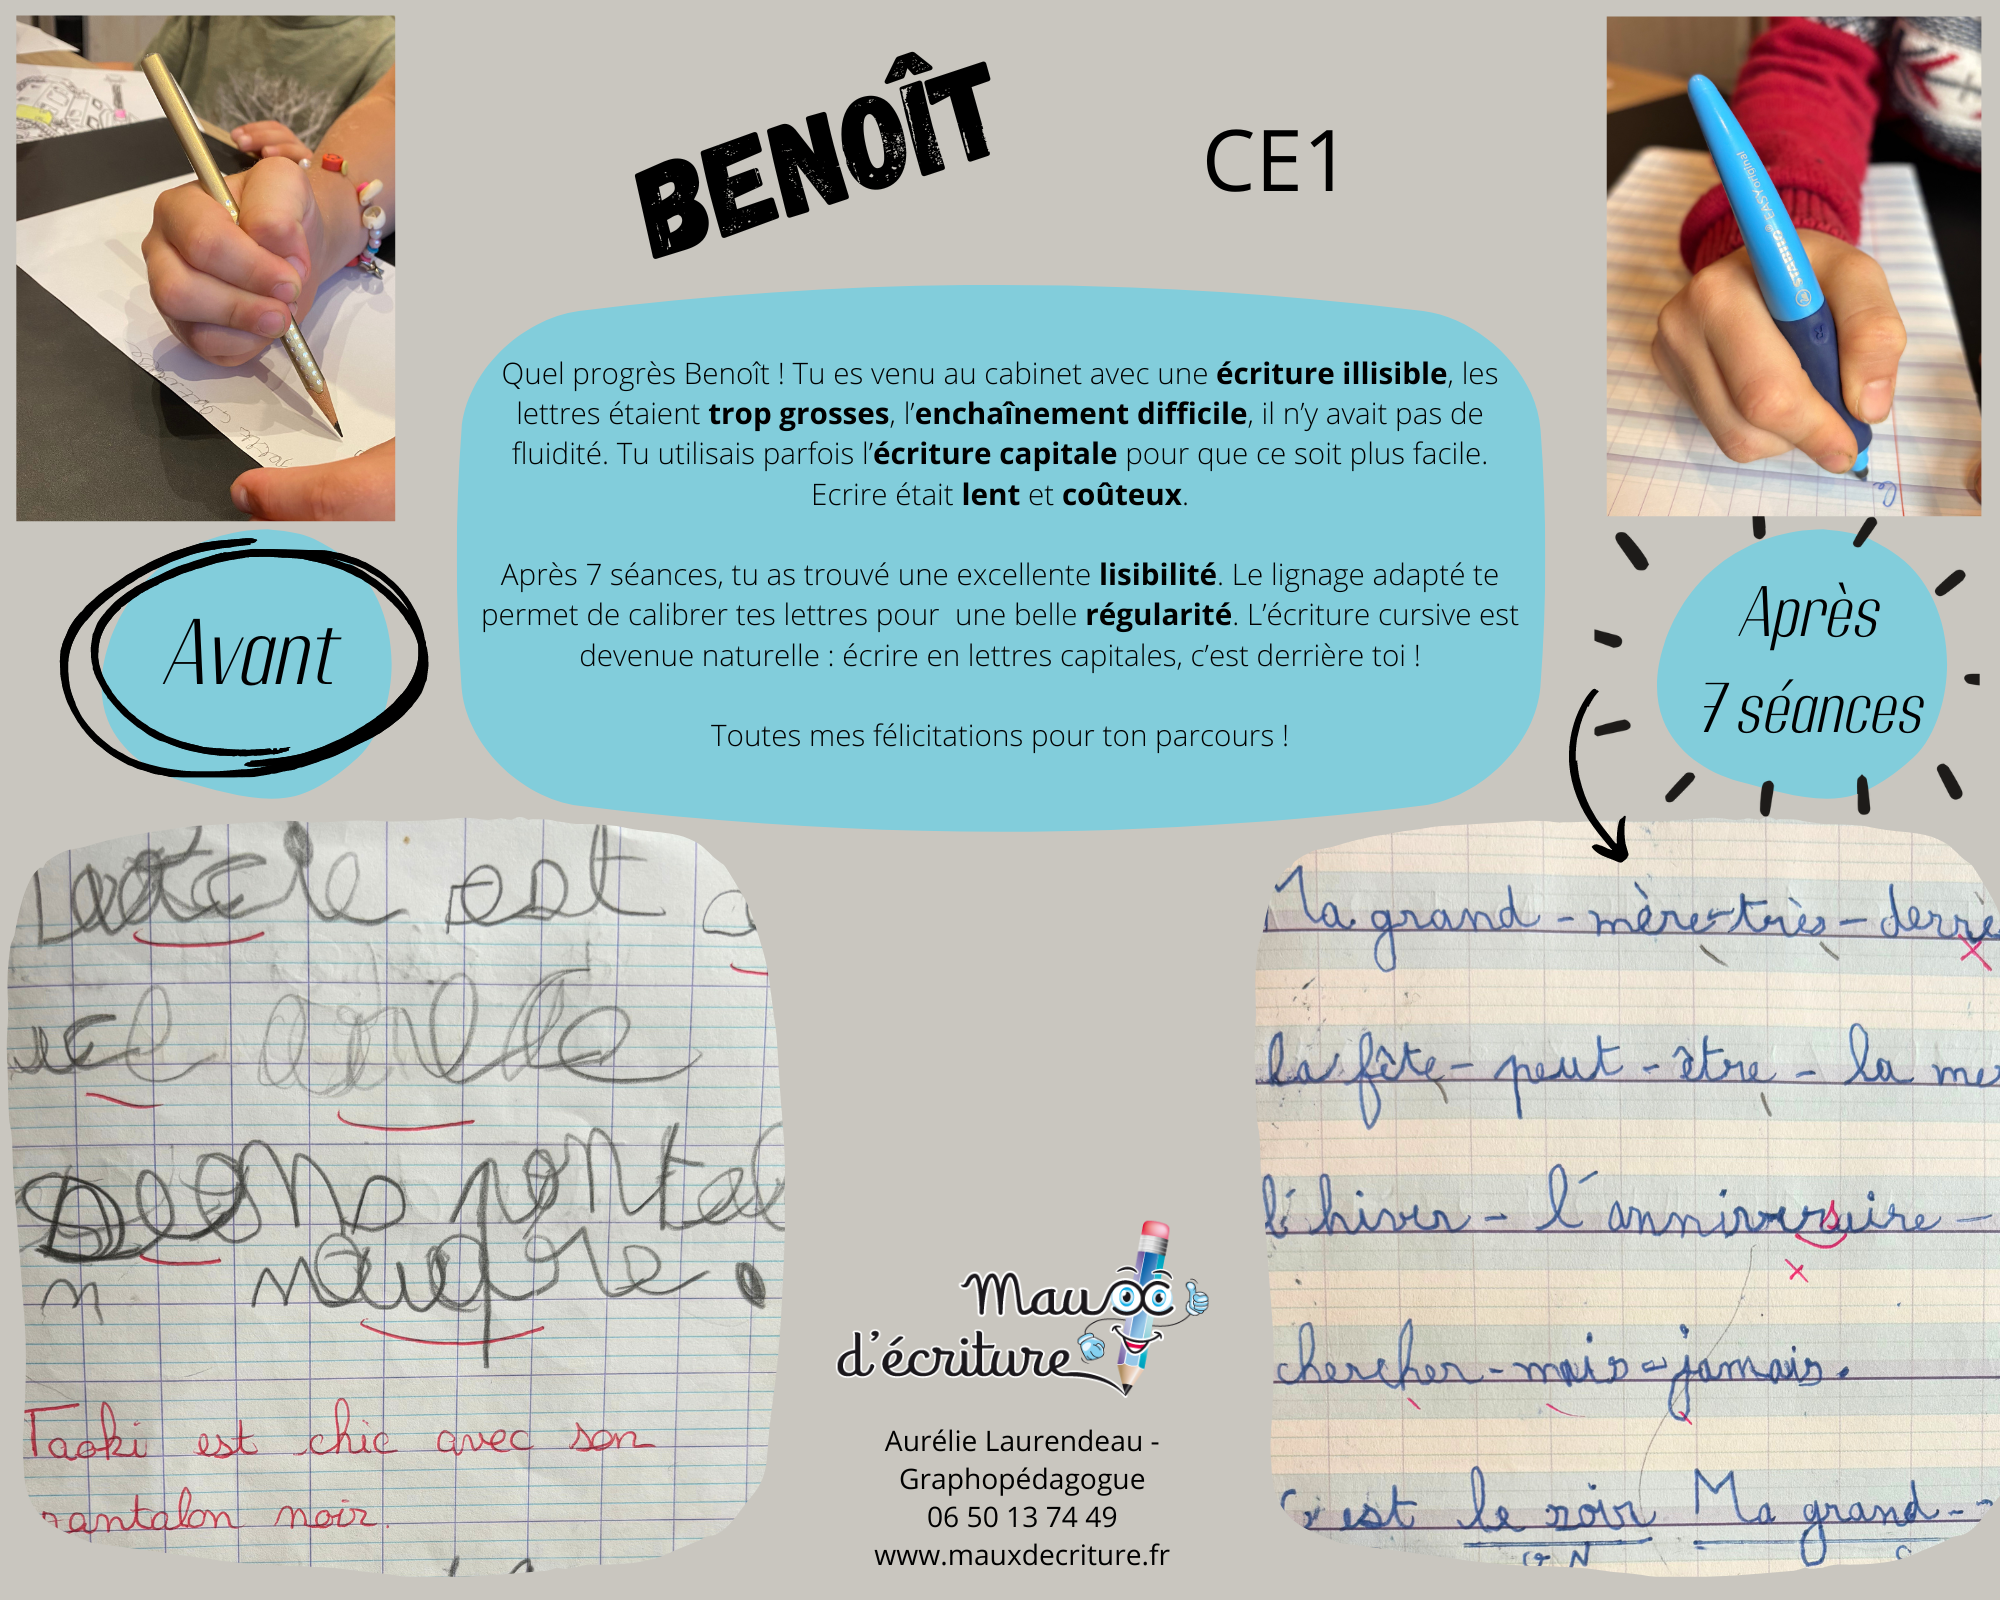 BENOÎT
CE1
STABILO® EASYoriginal
Quel progrès Benoît ! Tu es venu au cabinet avec une écriture illisible, les
lettres étaient trop grosses, l'enchaînement difficile, il n'y avait pas de
fluidité. Tu utilisais parfois l'écriture capitale pour que ce soit plus facile.
Ecrire était lent et coûteux.
Après 7 séances, tu as trouvé une excellente lisibilité. Le lignage adapté te
permet de calibrer tes lettres pour une belle régularité. L'écriture cursive est
devenue naturelle : écrire en lettres capitales, c'est derrière toi !
Toutes mes félicitations pour ton parcours !
Avant
Après
7 séances
est
Taoki est chic avec son
pantalon noir.
Ma grand - mère - très - derriè
la fête - peut - être - la me
l'hiver - l'anniversaire -
chercher - mais - jamais.
C'est le soir Ma grand -
Maux
d'écriture
Aurélie Laurendeau -
Graphopédagogue
06 50 13 74 49
www.mauxdecriture.fr